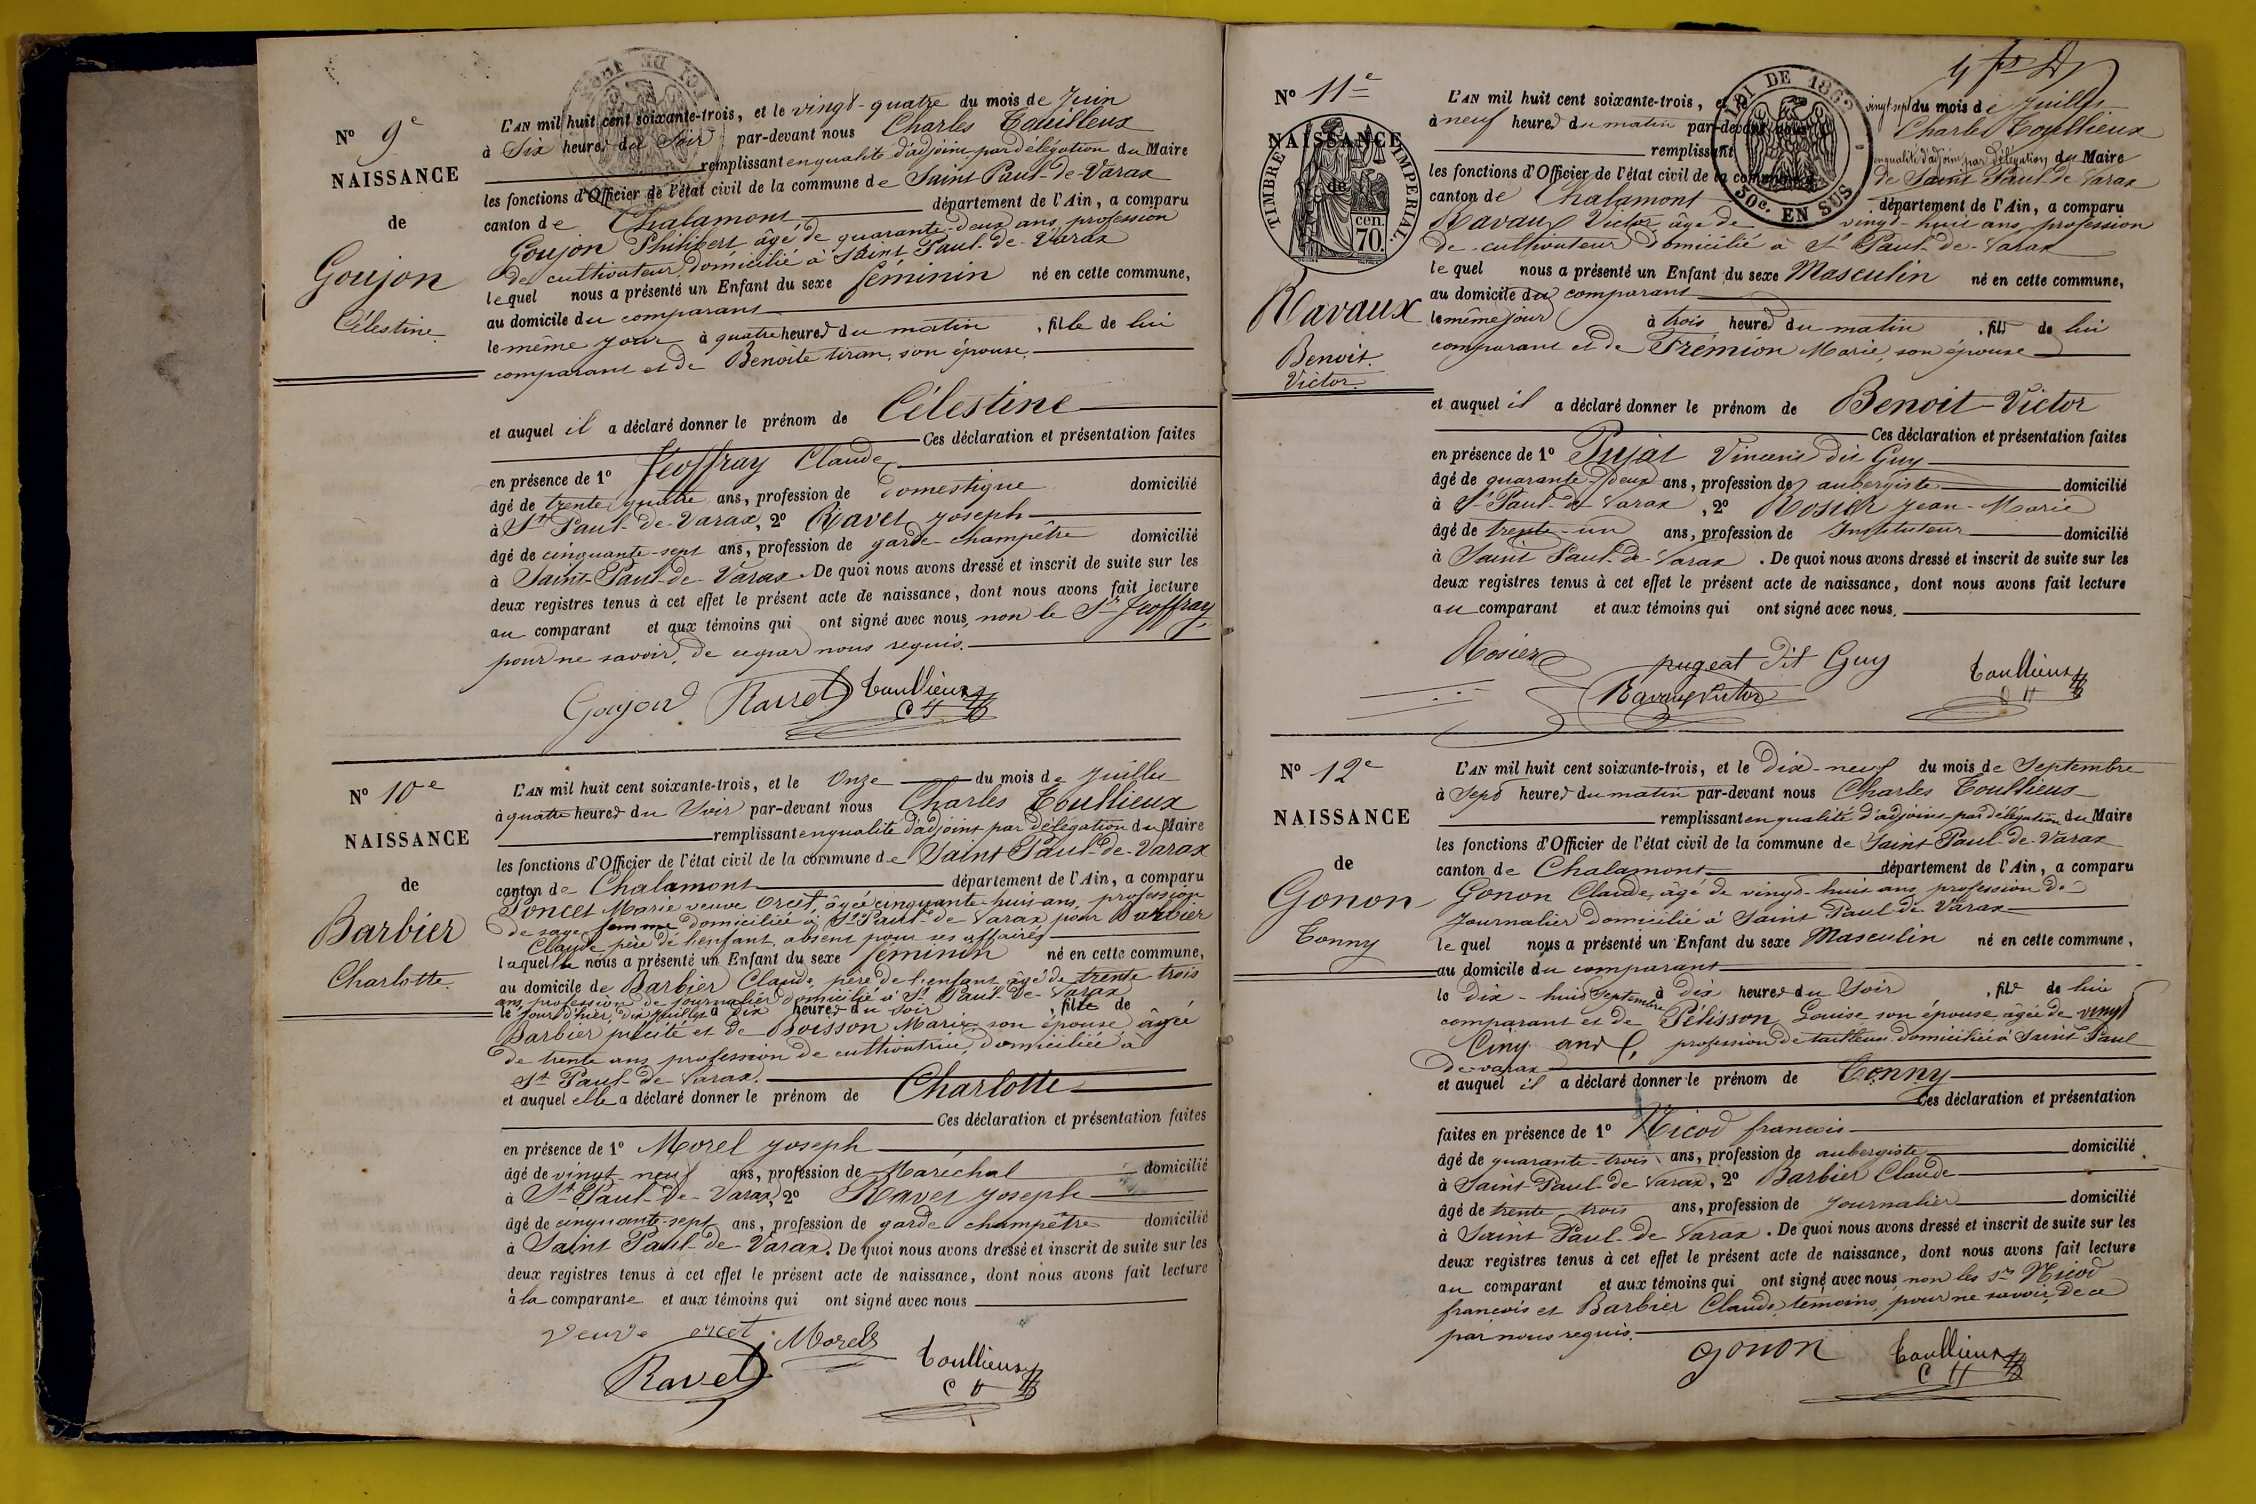 Nº 9e
NAISSANCE
de
Goujon
Célestine
L'AN mil huit cent soixante-trois, et le vingt-quatre du mois de Juin
à Six heures du Soir par-devant nous Charles Toullieux
remplissant en qualité d'adjoint par délégation du Maire
les fonctions d'Officier de l'état civil de la commune de Saint Paul-de-Varax
canton de Chalamont département de l'Ain, a comparu
Goujon Philibert âgé de quarante-deux ans, profession
de cultivateur domicilié à Saint Paul-de-Varax
lequel nous a présenté un Enfant du sexe féminin né en cette commune,
au domicile du comparant
le même jour à quatre heures du matin, fille de lui
comparant et de Benoite tiran, son épouse.
et auquel il a déclaré donner le prénom de Célestine
Ces déclaration et présentation faites
en présence de 1º Jeoffray Claude
âgé de trente quatre ans, profession de domestique domicilié
à St Paul-de-Varax, 2º Ravet Joseph
âgé de cinquante-sept ans, profession de garde-champêtre domicilié
à Saint-Paul-de-Varax. De quoi nous avons dressé et inscrit de suite sur les
deux registres tenus à cet effet le présent acte de naissance, dont nous avons fait lecture
au comparant et aux témoins qui ont signé avec nous, non le Sr Jeoffray
pour ne savoir, de ce par nous requis.
Goujon Ravet Toullieux
C H
Nº 10e
NAISSANCE
de
Barbier
Charlotte
L'AN mil huit cent soixante-trois, et le Onze du mois de Juillet
à quatre heures du Soir par-devant nous Charles Toullieux
remplissant en qualité d'adjoint par délégation du Maire
les fonctions d'Officier de l'état civil de la commune de Saint Paul-de-Varax
canton de Chalamont département de l'Ain, a comparu
Poncet Marie veuve Orcet, âgée cinquante-huit ans, profession
de sage femme domiciliée à St Paul de Varax pour Barbier
Claude père de l'enfant absent pour ses affaires
laquelle nous a présenté un Enfant du sexe féminin né en cette commune,
au domicile de Barbier Claude, père de l'enfant âgé de trente trois
ans, profession de journalier domicilié à St Paul-de-Varax
le jour d'hier, dix Juillet à dix heures du soir, fille de
Barbier précité et de Boisson Marie, son épouse âgée
de trente ans, profession de cultivatrice, domiciliée à
St Paul-de-Varax.
et auquel elle a déclaré donner le prénom de Charlotte
Ces déclaration et présentation faites
en présence de 1º Morel Joseph
âgé de vingt-neuf ans, profession de Maréchal domicilié
à St Paul-de-Varax, 2º Ravet Joseph
âgé de cinquante-sept ans, profession de garde champêtre domicilié
à Saint Paul-de-Varax. De quoi nous avons dressé et inscrit de suite sur les
deux registres tenus à cet effet le présent acte de naissance, dont nous avons fait lecture
à la comparante et aux témoins qui ont signé avec nous
veuve orcet Morel
Ravet Toullieux
C H
Nº 11e
NAISSANCE
de
TIMBRE IMPERIAL
70 cen.
Ravaux
Benoit
Victor
LOI DE 1862
50c. EN SUS
L'AN mil huit cent soixante-trois, et le vingt-sept du mois de Juillet
à neuf heures du matin par-devant nous Charles Toullieux
remplissant en qualité d'adjoint par délégation du Maire
les fonctions d'Officier de l'état civil de la commune de Saint Paul de Varax
canton de Chalamont département de l'Ain, a comparu
Ravaux Victor, âgé de vingt-huit ans, profession
de cultivateur domicilié à St Paul-de-Varax
lequel nous a présenté un Enfant du sexe Masculin né en cette commune,
au domicile du comparant
le même jour à trois heures du matin, fils de lui
comparant et de Frémion Marie, son épouse
et auquel il a déclaré donner le prénom de Benoit-Victor
Ces déclaration et présentation faites
en présence de 1º Pujat Vincent dit Guy
âgé de quarante-deux ans, profession de aubergiste domicilié
à St Paul-de Varax, 2º Rosier Jean-Marie
âgé de trente-un ans, profession de Instituteur domicilié
à Saint Paul-de-Varax. De quoi nous avons dressé et inscrit de suite sur les
deux registres tenus à cet effet le présent acte de naissance, dont nous avons fait lecture
au comparant et aux témoins qui ont signé avec nous.
Rosier pugeat dit Guy Toullieux
Ravaux Victor C H
Nº 12e
NAISSANCE
de
Gonon
Tonny
L'AN mil huit cent soixante-trois, et le Dix-neuf du mois de Septembre
à Sept heures du matin par-devant nous Charles Toullieux
remplissant en qualité d'adjoint par délégation du Maire
les fonctions d'Officier de l'état civil de la commune de Saint Paul-de-Varax
canton de Chalamont département de l'Ain, a comparu
Gonon Claude, âgé de vingt-huit ans, profession de
Journalier domicilié à Saint Paul de Varax
lequel nous a présenté un Enfant du sexe Masculin né en cette commune,
au domicile du comparant
le dix-huit Septembre à dix heures du Soir, fils de lui
comparant et de Pélisson Louise son épouse âgée de vingt
Cinq ans, profession de tailleuse domiciliée à Saint Paul
de-varax
et auquel il a déclaré donner le prénom de Tonny
Ces déclaration et présentation
faites en présence de 1º Nicod françois
âgé de quarante-trois ans, profession de aubergiste domicilié
à Saint-Paul-de Varax, 2º Barbier Claude
âgé de trente trois ans, profession de Journalier domicilié
à Saint Paul-de Varax. De quoi nous avons dressé et inscrit de suite sur les
deux registres tenus à cet effet le présent acte de naissance, dont nous avons fait lecture
au comparant et aux témoins qui ont signé avec nous non les Srs Nicod
françois et Barbier Claude, témoins, pour ne savoir, de ce
par nous requis.
gonon Toullieux
C H